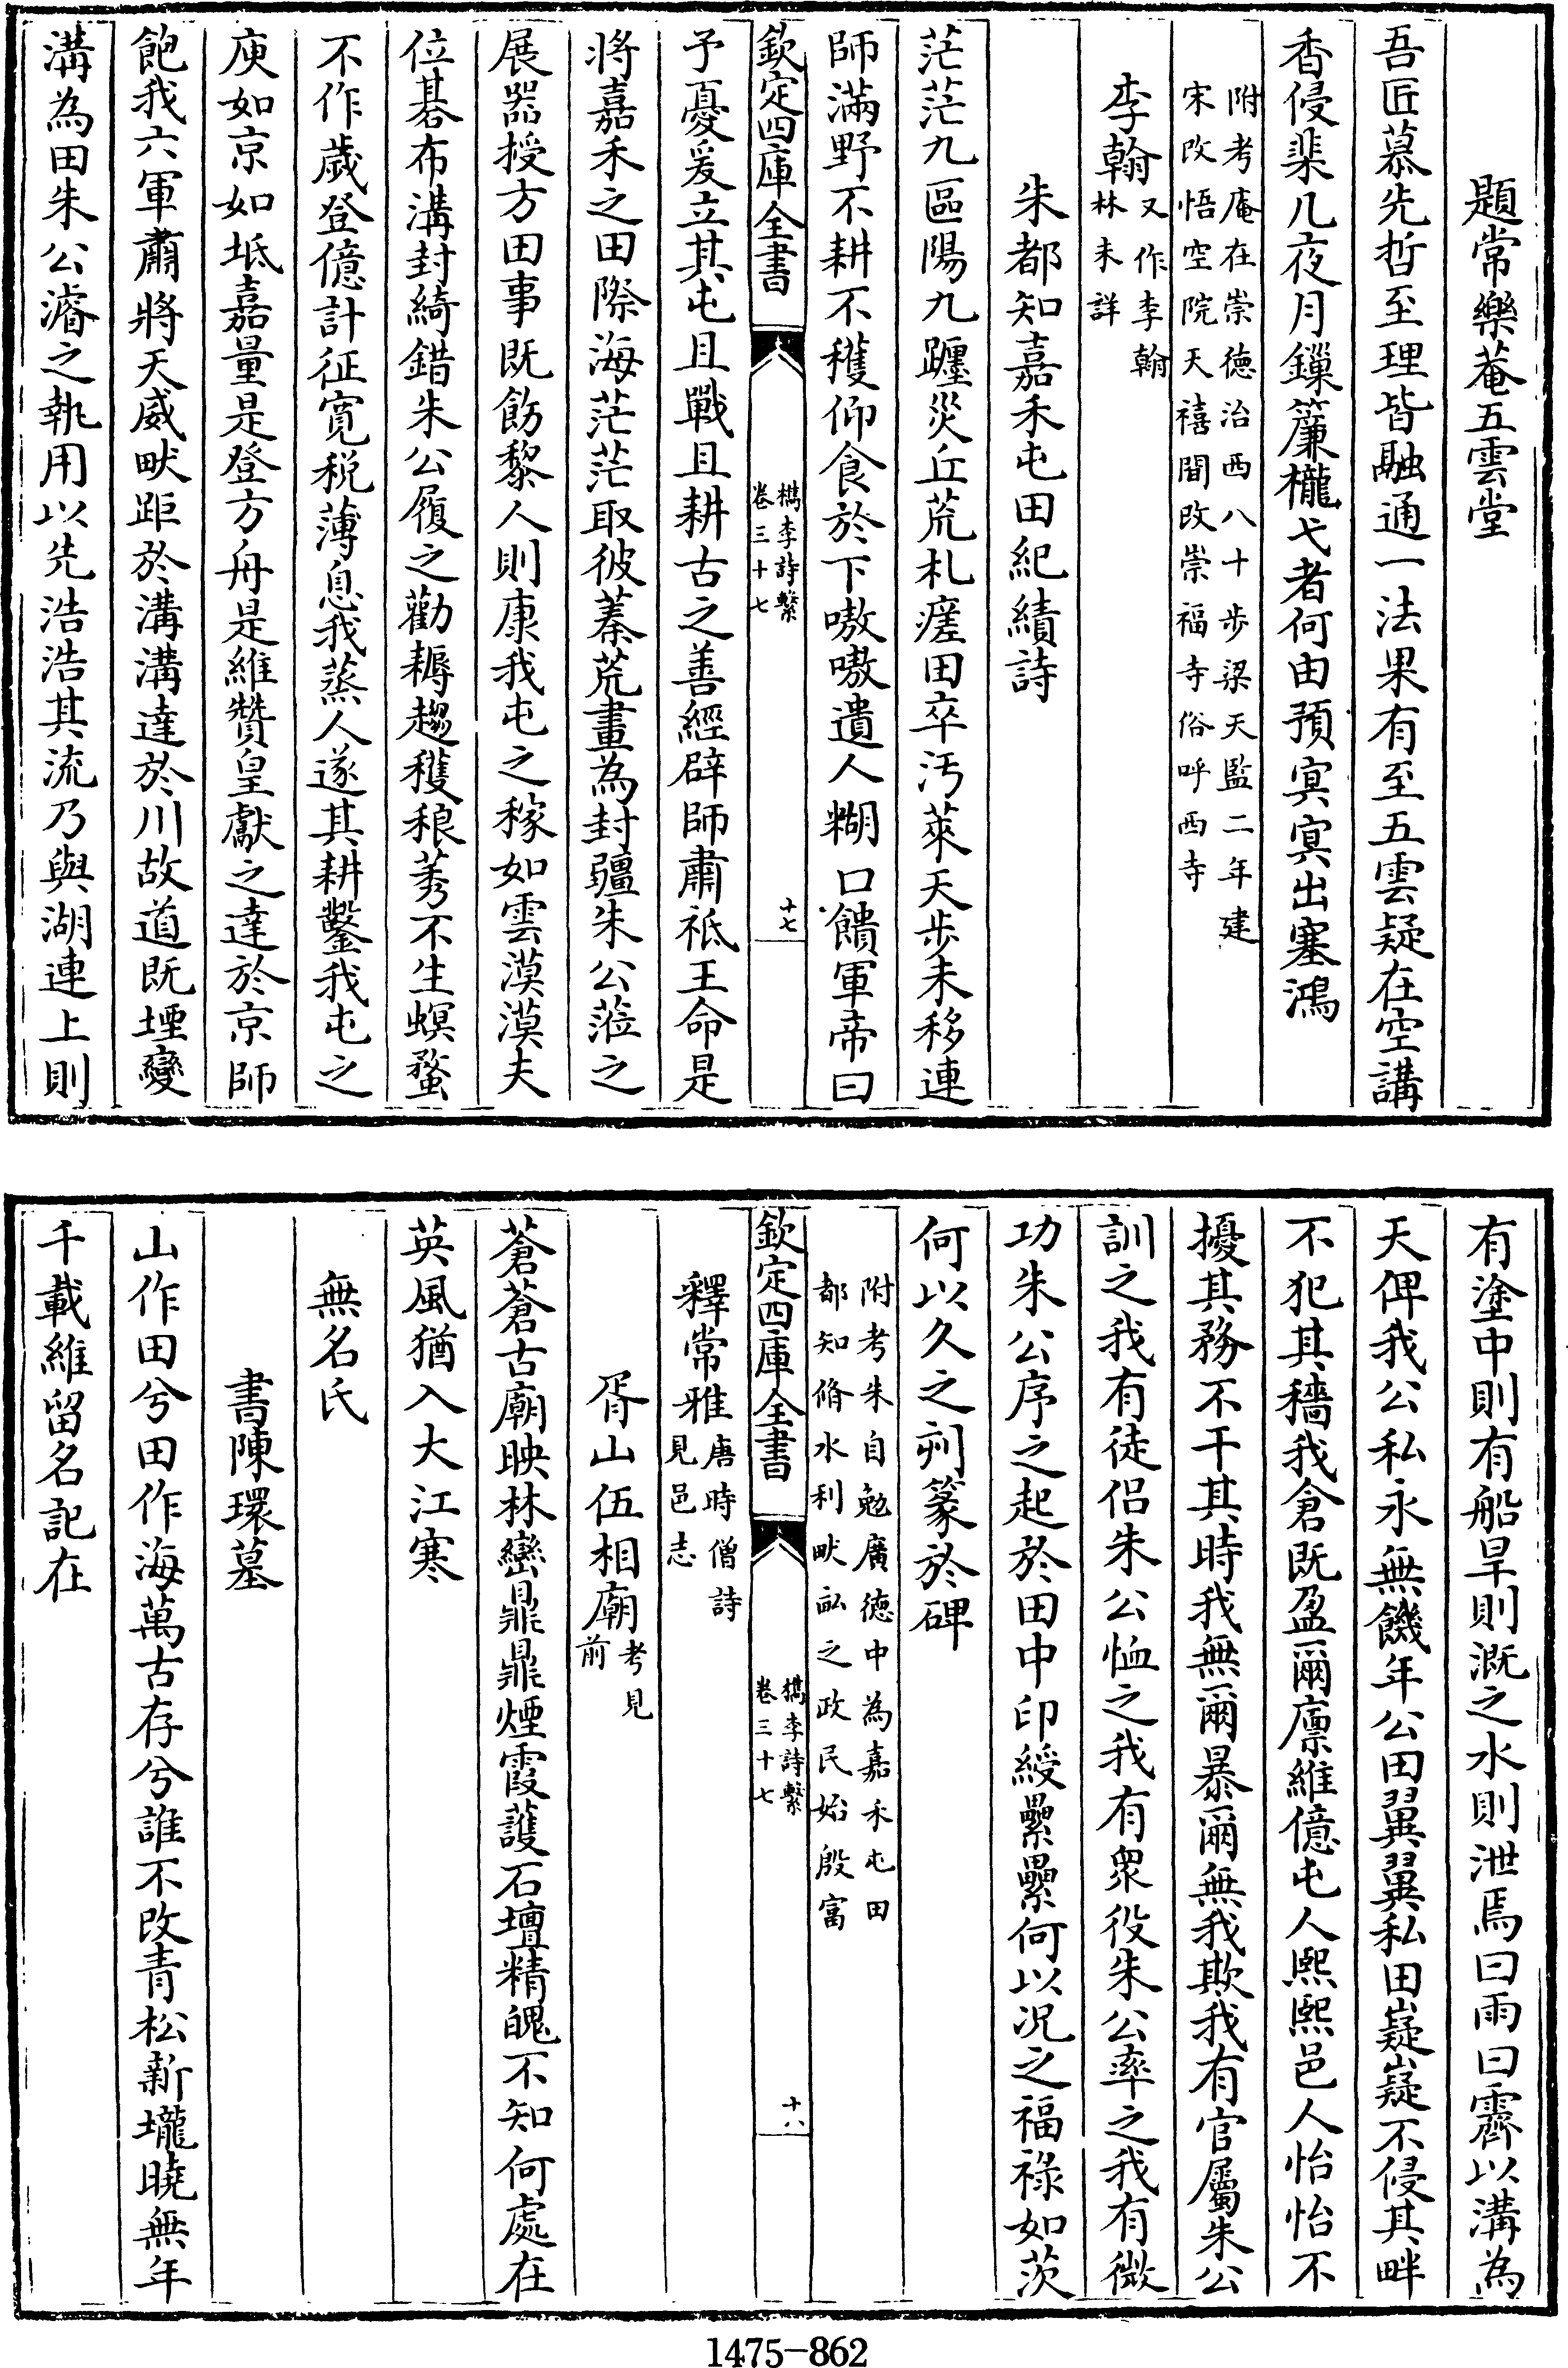 題常樂菴五雲堂
吾匠慕先哲至理皆融通一法果有至五雲疑在空講
香侵棐几夜月鏁簾櫳弋者何由預冥冥出塞鴻
附考庵在崇徳治西八十步梁天監二年建
宋改悟空院天禧間改崇福寺俗呼西寺
李翰又作李翰
林未詳
朱都知嘉禾屯田紀績詩
茫茫九區陽九躔災丘荒札瘥田卒汚萊天步未移連
師滿野不耕不穫仰食於下嗷嗷遺人糊口饋軍帝曰
欽定四庫全書
檇李詩繫
卷三十七
十七
予憂爰立其屯且戰且耕古之善經辟師肅祗王命是
將嘉禾之田際海茫茫取彼蓁荒畫為封疆朱公蒞之
展器授方田事既飭黎人則康我屯之稼如雲漠漠夫
位碁布溝封綺錯朱公履之勸耨趨穫稂莠不生螟蝥
不作歲登億計征寛税薄息我蒸人遂其耕鑿我屯之
庾如京如坻嘉量是登方舟是維贊皇獻之達於京師
飽我六軍肅將天威畎距於溝溝達於川故道既堙變
溝為田朱公濬之執用以先浩浩其流乃與湖連上則
有塗中則有船旱則溉之水則泄焉曰雨曰霽以溝為
天俾我公私永無饑年公田翼翼私田嶷嶷不侵其畔
不犯其穡我倉既盈爾廩維億屯人熙熙邑人怡怡不
擾其務不干其時我無爾暴爾無我欺我有官屬朱公
訓之我有徒侣朱公恤之我有衆役朱公率之我有微
功朱公序之起於田中印綬纍纍何以况之福禄如茨
何以久之刋篆於碑
附考朱自勉廣徳中為嘉禾屯田
都知脩水利畎畆之政民始殷富
欽定四庫全書
檇李詩繫
卷三十七
十八
釋常雅唐時僧詩
見邑志
胥山伍相廟考見
前
蒼蒼古廟映林巒鼎鼎煙霞護石壇精魄不知何處在
英風猶入大江寒
無名氏
書陳環墓
山作田兮田作海萬古存兮誰不改青松新壠曉無年
千載維留名記在
1475-862